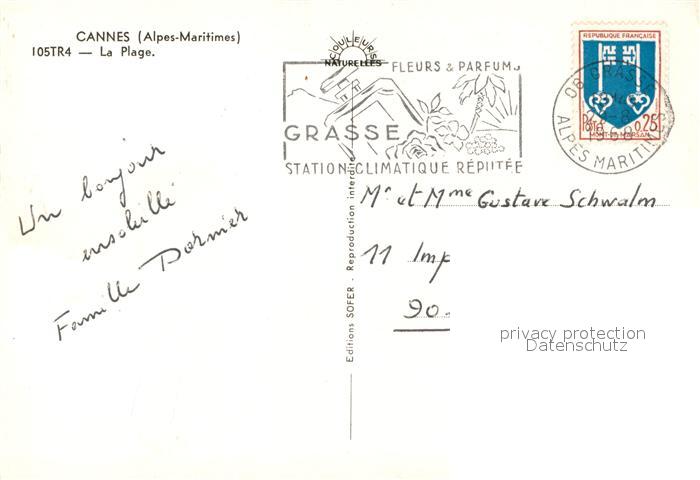 CANNES (Alpes-Maritimes)
105TR4 — La Plage.
COULEURS
NATURELLES
FLEURS & PARFUMS
GRASSE
STATION CLIMATIQUE RÉPUTÉE
REPUBLIQUE FRANÇAISE
POSTES 0,25
MONT-DE-MARSAN
06 GRASSE
ALPES MARITIMES
Un bonjour
ensoleillé
Famille Dormier
Editions SOFER . Reproduction interdite
Mr et Mme Gustave Schwalm
11 Imp
90.
privacy protection
Datenschutz